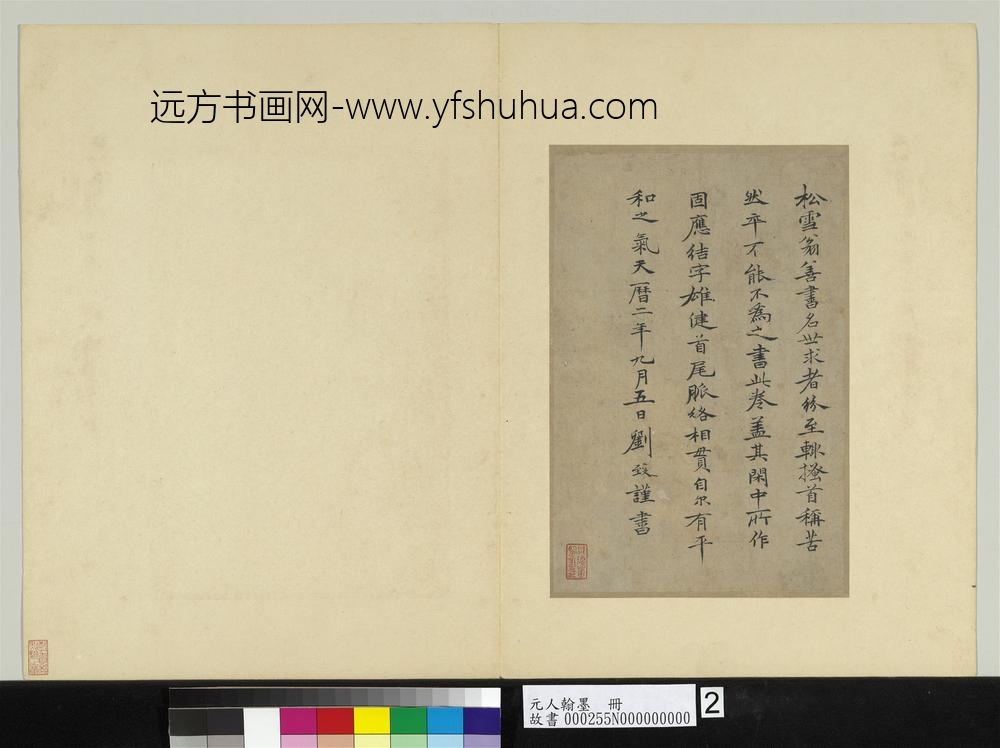 远方书画网-www.yfshuhua.com
松雪翁善書名世求者紛至輒搔首稱苦
然卒不能不為之書此卷盖其閑中所作
固應結字雄健首尾脈絡相貫自尔有平
和之氣天曆二年九月五日劉致謹書
元人翰墨 冊
故書 000255N000000000
2